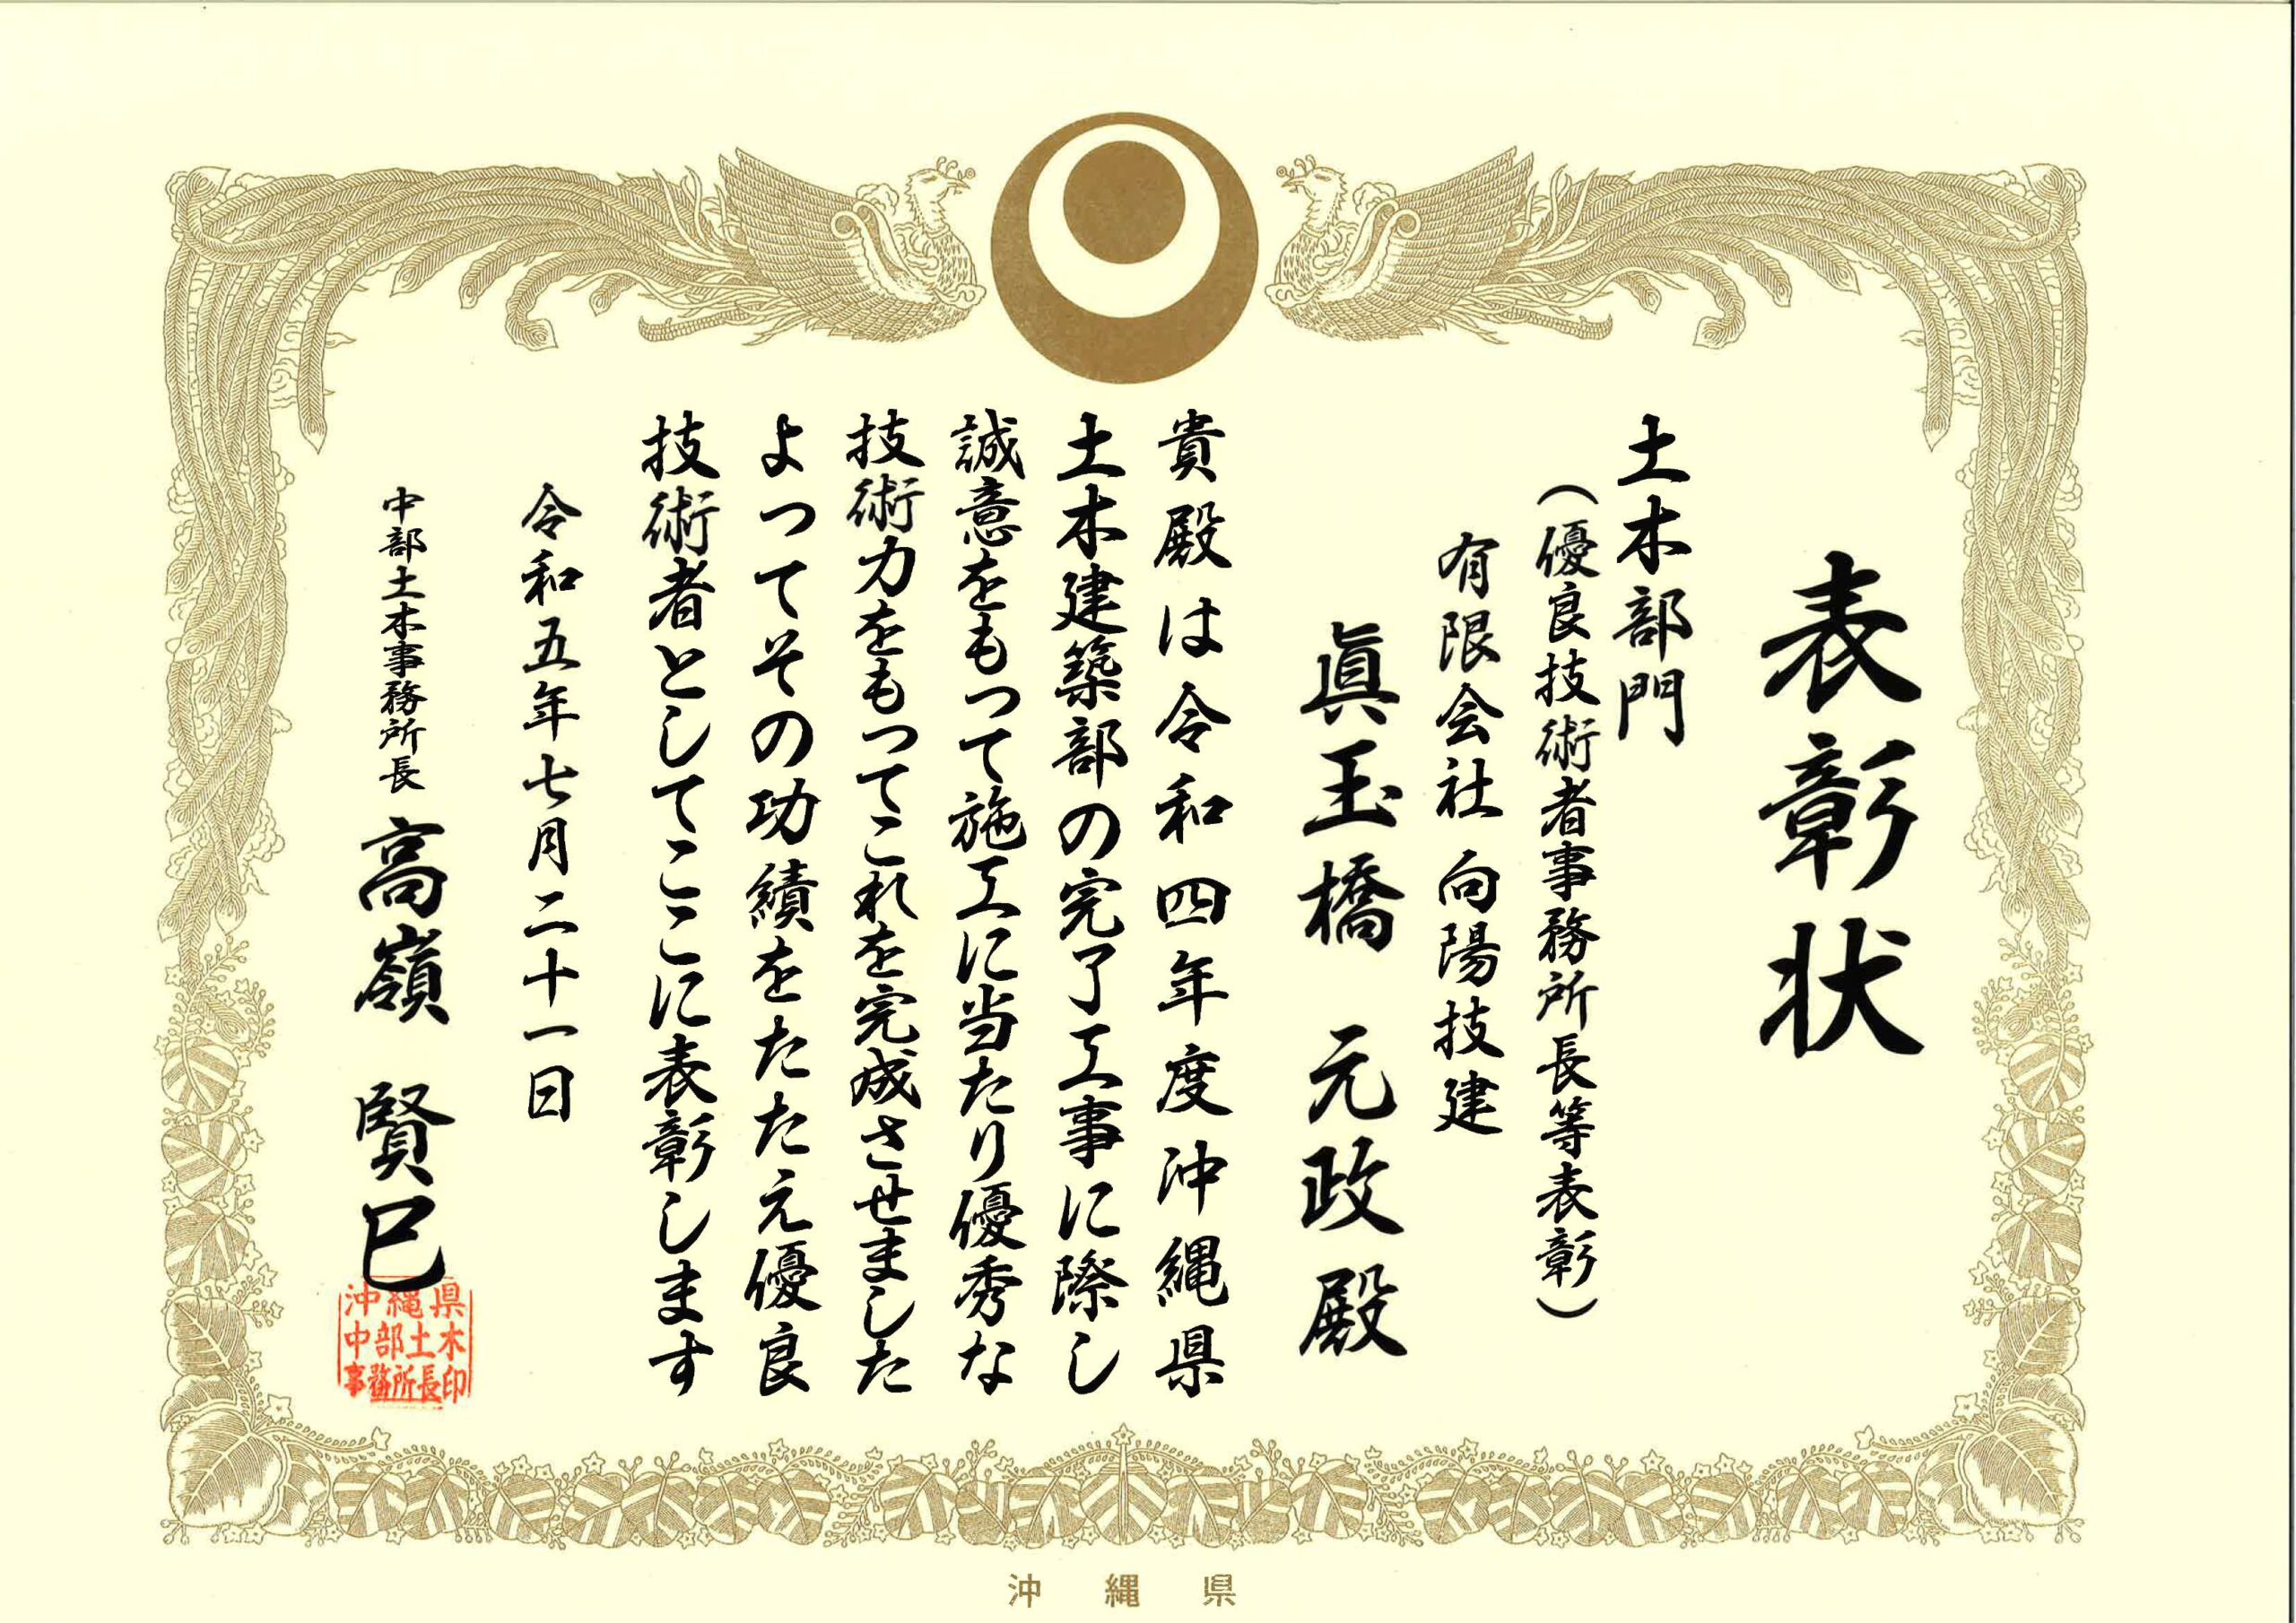 表彰状
土木部門
(優良技術者事務所長等表彰)
有限会社 向陽技建
眞玉橋 元政殿
貴殿は令和四年度沖縄県
土木建築部の完了工事に際し
誠意をもって施工に当たり優秀な
技術力をもってこれを完成させました
よってその功績をたたえ優良
技術者としてここに表彰します
令和五年七月二十一日
中部土木事務所長 高嶺 賢巳
沖縄県
中部土木
事務所長印
沖縄県